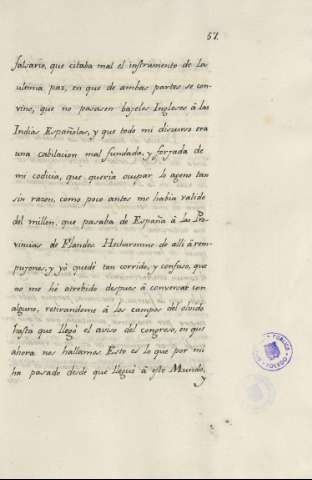 57.
falsario, que citaba mal el instrumento de la
ultima paz, en que de ambas partes se con-
vino, que no pasasen bajeles Ingleses á las
Indias Españolas, y que todo mi discurso era
una cabilacion mal fundada, y forjada de
mi codicia, que queria ocupar lo ageno tan
sin razon, como poco antes me habia valido
del millon, que pasaba de España á las Pro-
vincias de Flandes. Hecharonme de alli á rem-
pujones, y yó quedé tan corrido, y confuso, que
no me hé atrebido despues á conversar con
alguno, retirandome á los campos del olvido
hasta que llegó el aviso del congreso, en que
ahora nos hallamos. Esto es lo que por mi
ha pasado desde que llegué á este Mundo,
y
PUBLICA
TOLEDO